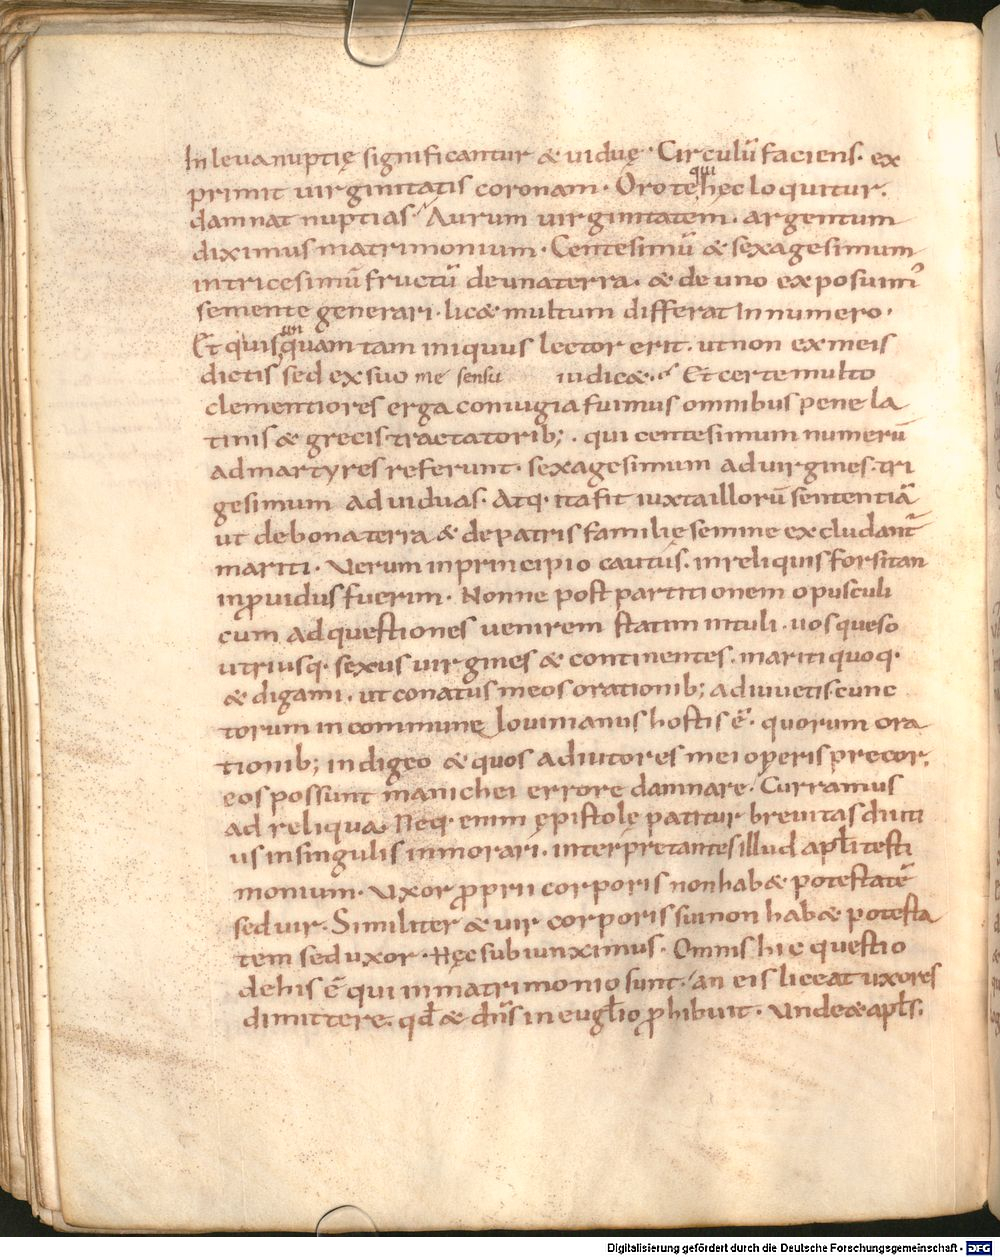 In leva nuptię significantur & viduę · Circulū faciens · ex
primit virginitatis coronam · Oro te qui hęc loquitur ·
damnat nuptias · Aurum virginitatem · argentum
diximus matrimonium · Centesimū & sexagesimum
in tricesimū fructū de una terra · & de uno exposuim̄
semente generari · lic& multum differat In numero ·
Et quis un quam tam iniquus lector erit · ut non ex meis
dictis sed ex suo me sensu iudic& · Et certe multo
clementiores erga coniugia fuimus omnibus pene la
tinis & grecis tractatorib; · qui centesimum numerū
ad martyres referunt · sexagesimum ad virgines · tri
gesimum ad viduas · Atq· ita fit iuxta illorū sententiā
ut de bona terra & de patris familię semine excludant̄
mariti · Verum in principio cautus · in reliquis forsitan
inp̱vidus fuerim · Nonne post partitionem opusculi
cum ad questiones venirem statim intuli · vos queso
utriusq· sexus virgines & continentes · mariti quoq·
& digami · ut conatus meos orationib; adiuvetis cunc
torum in commune Iovinianus hostis ē · quorum ora
tionib; indigeo & quos adiutores mei operis precor ·
eos possunt manichei errore damnare · Curramus
ad reliqua · Neq· enim ępistolę patitur brevitas diuti
us in singulis inmorari · interpretantes illud apłi testi
monium · Uxor p̱prii corporis non hab& potestatē
sed vir · Similiter & vir corporis sui non hab& potesta
tem sed uxor · Hęc subiunximus · Omnis hic questio
de his ē qui in matrimonio sunt · an eis liceat uxores
dimittere · qđ & dn̄s in eugłio p̱hibuit · Unde & apłs ·
Digitalisierung gefördert durch die Deutsche Forschungsgemeinschaft · DFG